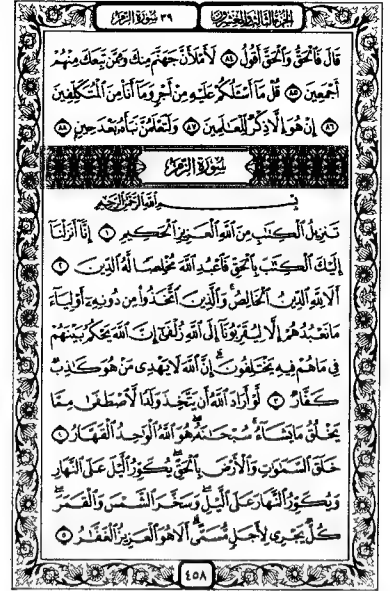 الجزء الثالث والعشرون
٣٩ سورة الزمر
قَالَ فَالْحَقُّ وَالْحَقَّ أَقُولُ ٨٤ لَأَمْلَأَنَّ جَهَنَّمَ مِنكَ وَمِمَّن تَبِعَكَ مِنْهُمْ
أَجْمَعِينَ ٨٥ قُلْ مَا أَسْـَٔلُكُمْ عَلَيْهِ مِنْ أَجْرٍ وَمَا أَنَا۠ مِنَ الْمُتَكَلِّفِينَ
٨٦ إِنْ هُوَ إِلَّا ذِكْرٌ لِّلْعَـٰلَمِينَ ٨٧ وَلَتَعْلَمُنَّ نَبَأَهُۥ بَعْدَ حِينٍ ٨٨
سُورَةُ الزُّمَرِ
بِسْمِ اللَّهِ الرَّحْمَـٰنِ الرَّحِيمِ
تَنزِيلُ الْكِتَـٰبِ مِنَ اللَّهِ الْعَزِيزِ الْحَكِيمِ ١ إِنَّا أَنزَلْنَا
إِلَيْكَ الْكِتَـٰبَ بِالْحَقِّ فَاعْبُدِ اللَّهَ مُخْلِصًا لَّهُ الدِّينَ ٢
أَلَا لِلَّهِ الدِّينُ الْخَالِصُ ۚ وَالَّذِينَ اتَّخَذُوا مِن دُونِهِۦ أَوْلِيَاءَ
مَا نَعْبُدُهُمْ إِلَّا لِيُقَرِّبُونَا إِلَى اللَّهِ زُلْفَىٰ إِنَّ اللَّهَ يَحْكُمُ بَيْنَهُمْ
فِي مَا هُمْ فِيهِ يَخْتَلِفُونَ ۗ إِنَّ اللَّهَ لَا يَهْدِي مَنْ هُوَ كَـٰذِبٌ
كَفَّارٌ ٣ لَّوْ أَرَادَ اللَّهُ أَن يَتَّخِذَ وَلَدًا لَّاصْطَفَىٰ مِمَّا
يَخْلُقُ مَا يَشَاءُ ۚ سُبْحَـٰنَهُۥ ۖ هُوَ اللَّهُ الْوَٰحِدُ الْقَهَّارُ ٤
خَلَقَ السَّمَـٰوَٰتِ وَالْأَرْضَ بِالْحَقِّ ۖ يُكَوِّرُ الَّيْلَ عَلَى النَّهَارِ
وَيُكَوِّرُ النَّهَارَ عَلَى الَّيْلِ ۖ وَسَخَّرَ الشَّمْسَ وَالْقَمَرَ ۖ
كُلٌّ يَجْرِي لِأَجَلٍ مُّسَمًّى ۗ أَلَا هُوَ الْعَزِيزُ الْغَفَّـٰرُ ٥
٤٥٨